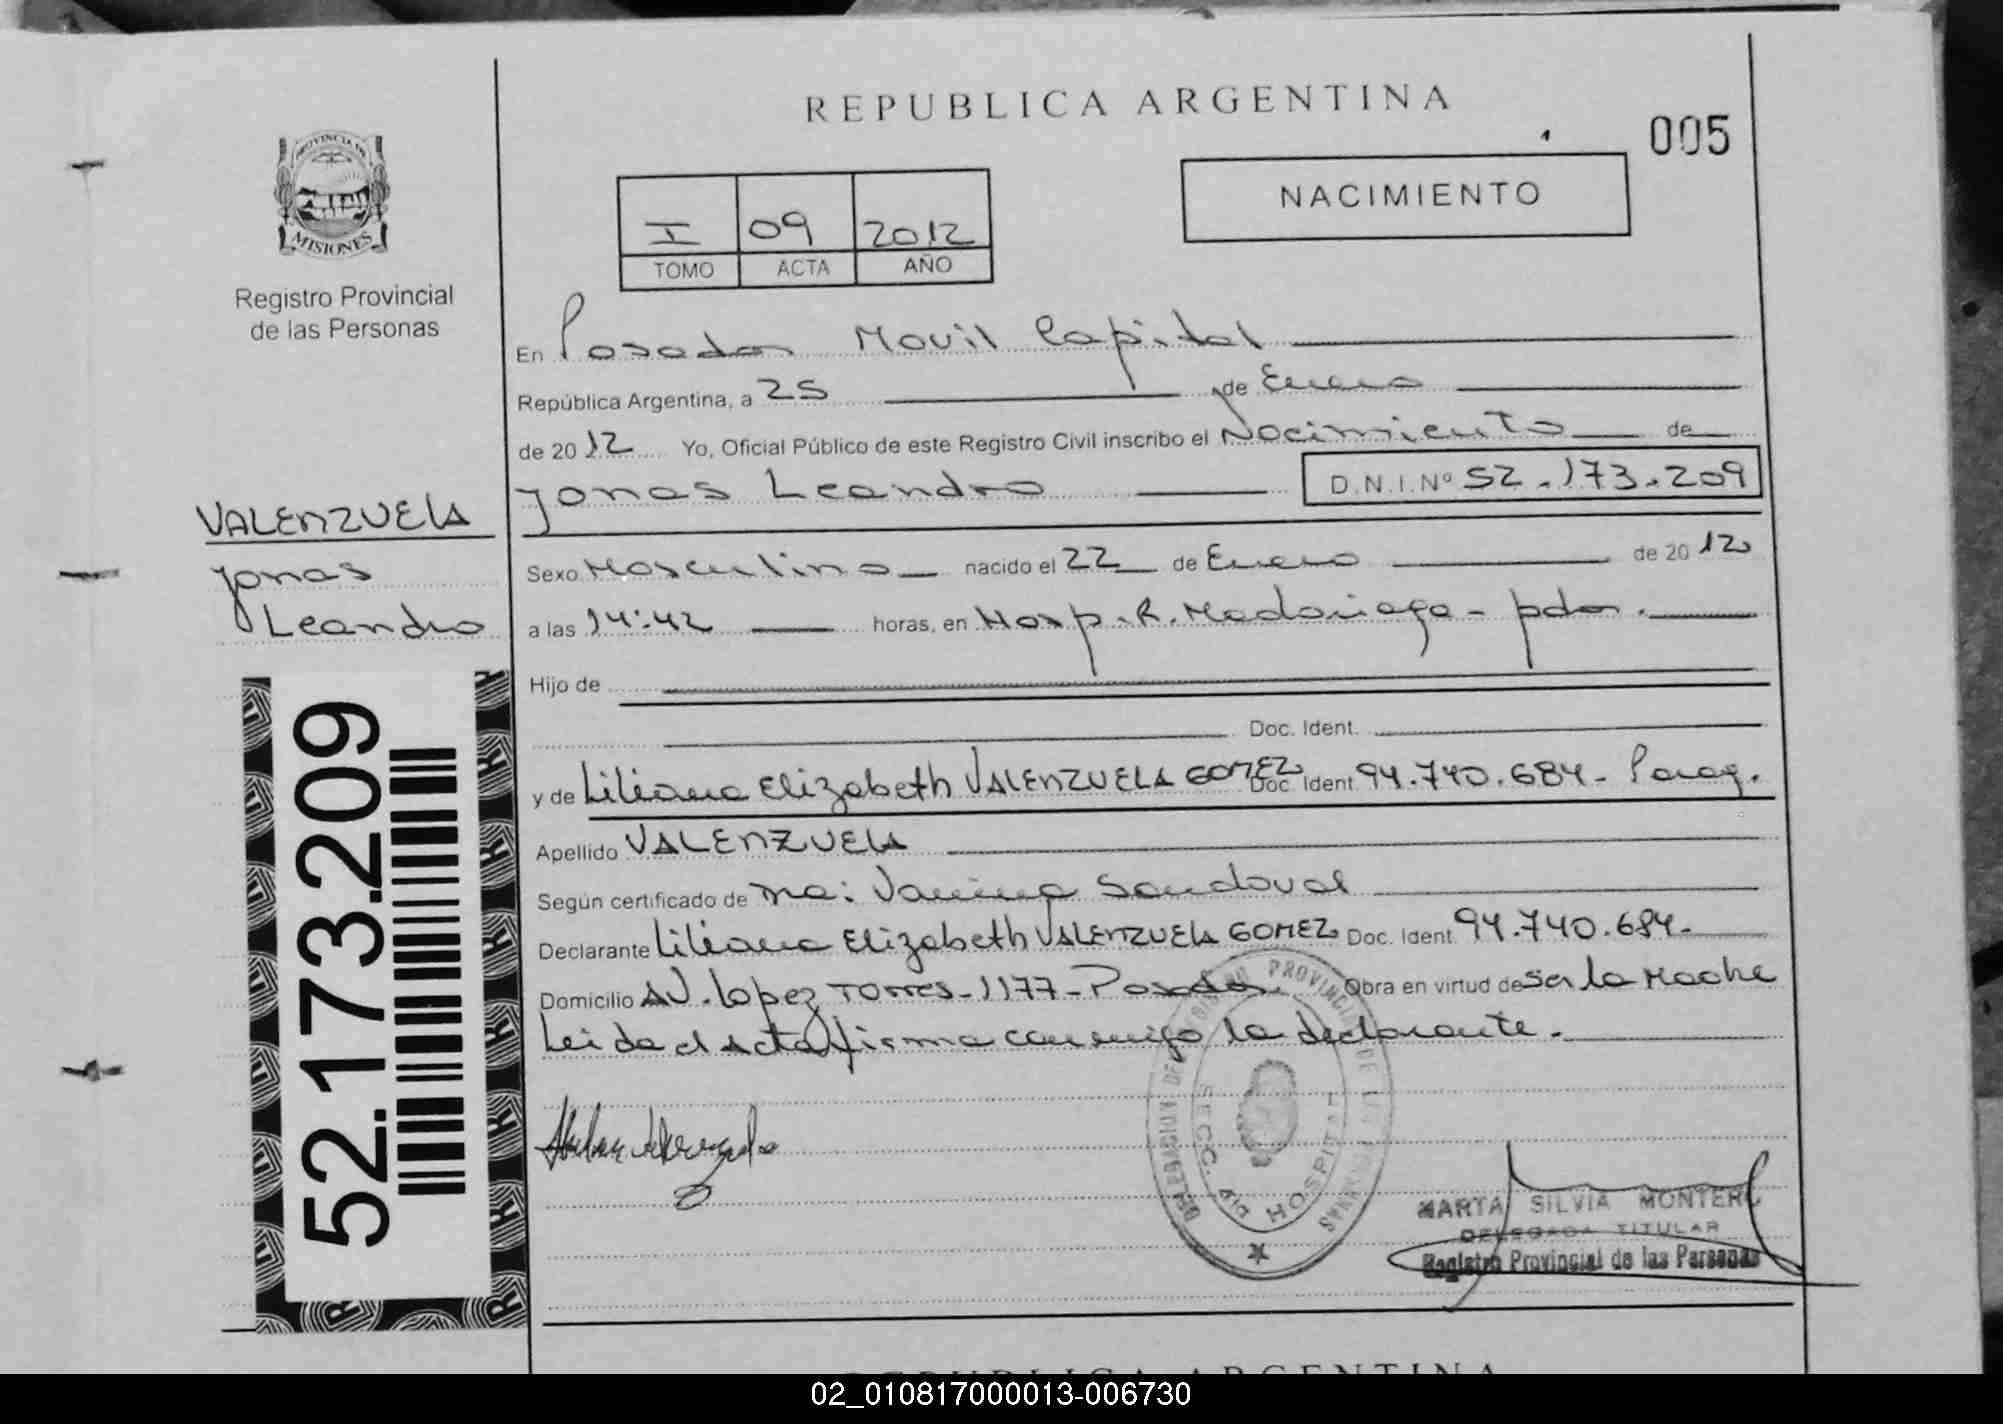 REPUBLICA ARGENTINA
005
NACIMIENTO
I 09 2012
TOMO ACTA AÑO
PROVINCIA DE
MISIONES
Registro Provincial
de las Personas
En Posadas Movil Capital
República Argentina, a 25 de Enero
de 2012 Yo, Oficial Público de este Registro Civil inscribo el Nacimiento de
Jonas Leandro D.N.I.Nº 52.173.209
VALENZUELA
Jonas
Leandro
Sexo Masculino nacido el 22 de Enero de 2012
a las 14:42 horas, en Hosp. R. Madariaga - pdas.
Hijo de
Doc. Ident.
y de Liliana Elizabeth VALENZUELA GOMEZ Doc. Ident. 94.740.684- Parag.
Apellido VALENZUELA
Según certificado de Sandoval
Declarante Liliana Elizabeth VALENZUELA GOMEZ Doc. Ident. 94.740.684-
Domicilio AV. Lopez Torres-1177-Posadas. Obra en virtud de ser la Madre
Leida el acta firma conmigo la declarante.
52.173.209
DELEGACION DEL REGISTRO PROVINCIAL DE LAS PERSONAS
SECC. HOSPITAL
MARTA SILVIA MONTERO
DELEGADA TITULAR
Registro Provincial de las Personas
REPUBLICA ARGENTINA
02_010817000013-006730